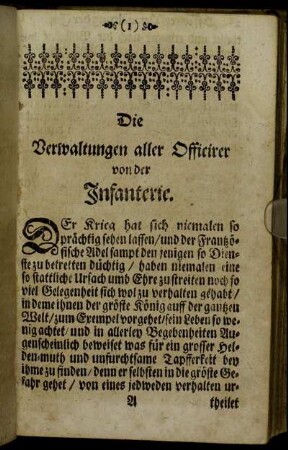 (1)
Die
Verwaltungen aller Officirer
von der
Infanterie.
DEr Krieg hat sich niemalen so
prächtig sehen lassen / und der Frantzö-
sische Adel sampt den jenigen so Dien-
ste zu betretten düchtig / haben niemalen eine
so stattliche Ursach umb Ehre zu streiten noch so
viel Gelegenheit sich wol zu verhalten gehabt /
in deme jenen der gröste König auff der gantzen
Welt / zum Exempel vorgehet / sein Leben so we-
nig achtet / und in allerley Begebenheiten Au-
genscheinlich beweiset was für ein grosser Hel-
den-muth und unfurchtsame Tapfferkeit bey
ihme zu finden / denn er selbsten in die gröste Ge-
fahr gehet / von eines jedweden verhalten ur-
A theilet